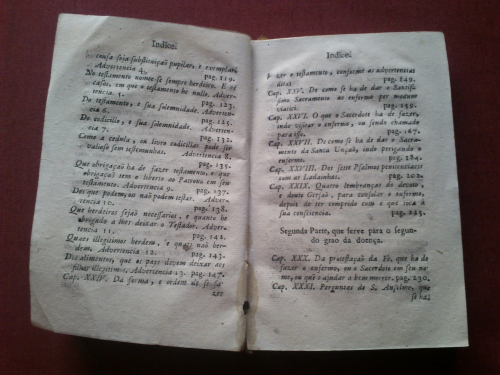 Indice.
cousa seja substituiçaõ pupilar, e exemplar.
Advertencia 4. pag. 119.
No testamento nomee-se sempre herdeiro. E os
casos, em que o testamento he nullo. Adver-
tencia 5. pag. 123.
Do testamento, e sua solemnidade. Adverten-
cia 6. pag. 125.
Do codicillo, e sua solemnidade. Adverten-
cia 7. pag. 131.
Como a cedula, ou livro codicillar póde ser
valioso sem testemunhas. Advertencia 8.
pag. 135.
Que obrigaçaõ ha de fazer testamento, e que
obrigaçaõ tem o liberto ao Patrono em seu
testamento. Advertencia 9. pag. 137.
Dos que podem, ou naõ podem testar. Advertencia
10. pag. 138.
Que herdeiros sejaõ necessarios, e quanto he
obrigado a lhes deixar o Testador. Adver-
tencia 11. pag. 142.
Quaes illegitimos herdem, e quaes naõ her-
dem. Advertencia 12. pag. 143.
Dos alimentos, que os pays devem deixar aos
filhos illegitimos. Advertencia 13. pag. 147.
Cap. XXIV. Da forma, e ordem de se fa-
zer
Indice.
zer o testamento, conforme as advertencias
ditas. pag. 149.
Cap. XXV. De como se ha de dar o Santissi-
mo Sacramento ao enfermo per modum
viatici. pag. 159.
Cap. XXVI. O que o Sacerdote ha de fazer,
indo visitar o enfermo, ou sendo chamado
para isso. pag. 167.
Cap. XXVII. De como se ha de dar o Sacra-
mento da Santa Unçaõ, hindo preparado o
enfermo. pag. 184.
Cap. XXVIII. Dos sette Psalmos penitenciaes
com as Ladainhas. pag. 202.
Cap. XXIX. Quatro lembranças do devoto, e
douto Gerson, para consolar ao enfermo,
depois de ter comprido com o que toca á
sua consciencia. pag. 225.
Segunda Parte, que serve para o segun-
do grao da doença.
Cap. XXX. Da protestaçaõ da Fé, que ha de
fazer o enfermo, ou o Sacerdote em seu no-
me, ou quem o ajudar a bem morrer. pag. 230.
Cap. XXXI. Perguntas de S. Anselmo, que
se haõ